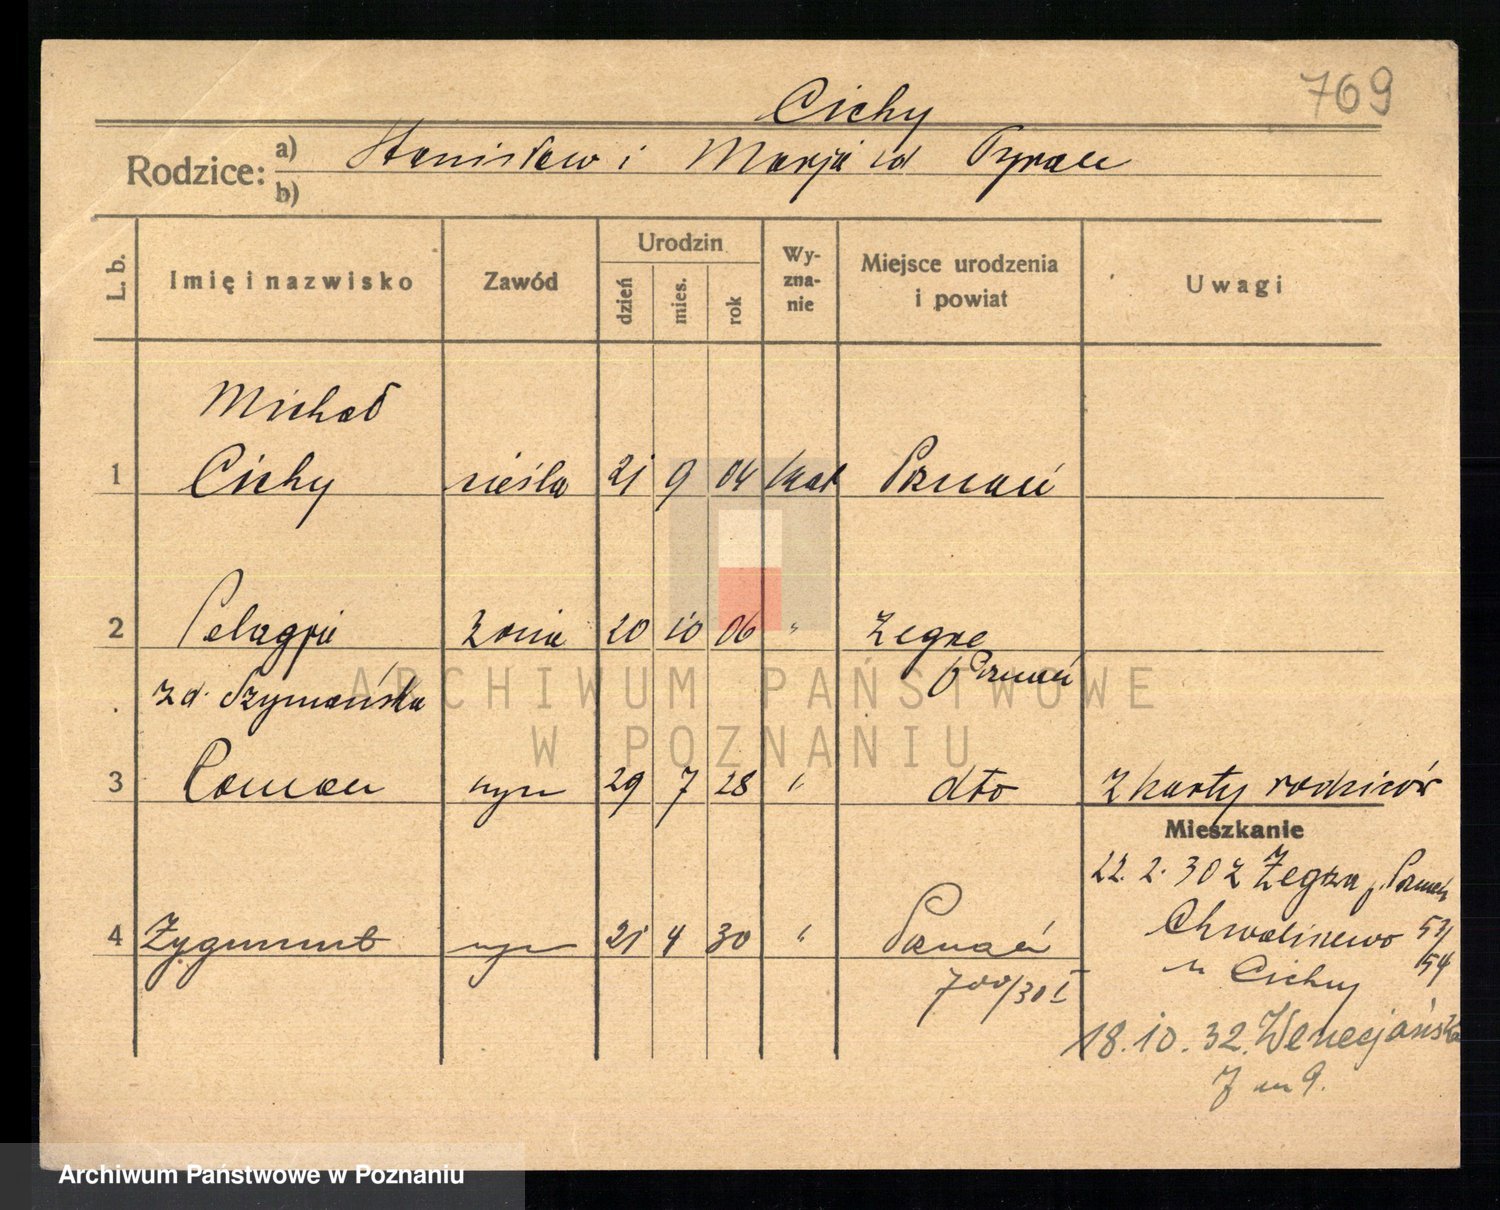 769
Cichy
Rodzice: a) Stanisław i Marja zd Pyrac
b)
L. b. Imię i nazwisko Zawód Urodzin dzień mies. rok Wyzna-nie Miejsce urodzenia i powiat Uwagi
Michał
1 Cichy cieśla 21 9 04 kat Poznań
2 Pelagja żona 20 10 06 " Żegrze
zd. Szymańska p Poznań
3 Roman syn 29 7 28 " dto z karty rodziców
Mieszkanie
22. 2. 30 z Żegrza p. Poznań
4 Zygmunt syn 21 4 30 " Poznań Chwaliszewo 53/54
700/30 I u Cichy
18.10.32. Wenecjańska
7 m 9.
ARCHIWUM PAŃSTWOWE
W POZNANIU
Archiwum Państwowe w Poznaniu